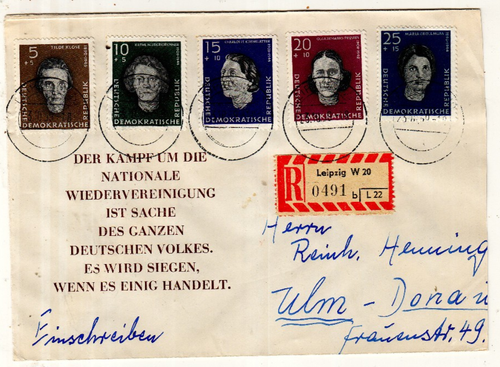 5
+5
DEUTSCHE
DEMOKRATISCHE
REPUBLIK
10
+5
DEUTSCHE
DEMOKRATISCHE
REPUBLIK
15
+10
DEUTSCHE
DEMOKRATISCHE
REPUBLIK
20
+10
DEUTSCHE
DEMOKRATISCHE
REPUBLIK
25
+15
DEUTSCHE
DEMOKRATISCHE
REPUBLIK
DER KAMPF UM DIE
NATIONALE
WIEDERVEREINIGUNG
IST SACHE
DES GANZEN
DEUTSCHEN VOLKES.
ES WIRD SIEGEN,
WENN ES EINIG HANDELT.
R
Leipzig W 20
0491 b L 22
Herrn
Reinh. Henning
Ulm - Donau
Frauenstr. 49.
Einschreiben